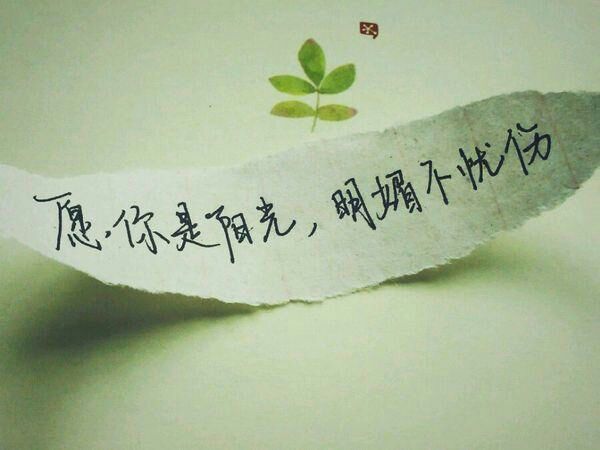 愿.你是阳光，明媚不忧伤